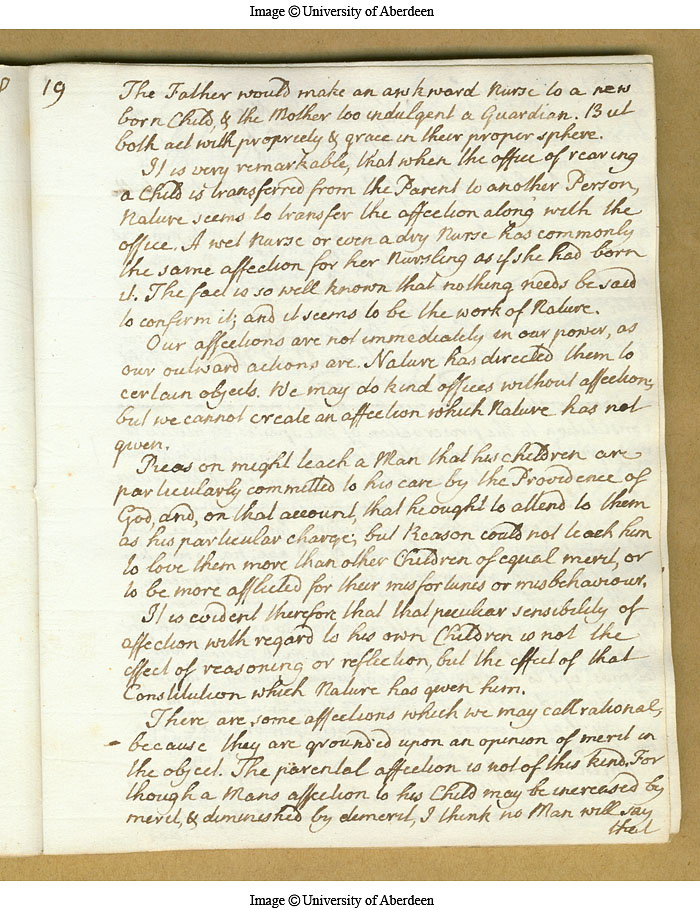 Image © University of Aberdeen
19
The Father would make an awkward Nurse to a new
born Child, & the Mother too indulgent a Guardian. But
both act with propriety & grace in their proper sphere.
It is very remarkable, that when the office of rearing
a Child is transferred from the Parent to another Person,
Nature seems to transfer the affection along with the
office. A wet Nurse or even a dry Nurse has commonly
the same affection for her Nursling as if she had born
it. The fact is so well known that nothing needs be said
to confirm it; and it seems to be the work of Nature.
Our affections are not immediately in our power, as
our outward actions are. Nature has directed them to
certain objects. We may do kind offices without affection,
but we cannot create an affection which Nature has not
given.
Reason might teach a Man that his children are
particularly committed to his care by the Providence of
God, and, on that account, that he ought to attend to them
as his particular charge; but Reason could not teach him
to love them more than other Children of equal merit, or
to be more afflicted for their misfortunes or misbehaviour.
It is evident therefore that that peculiar sensibility of
affection with regard to his own Children is not the
effect of reasoning or reflection, but the effect of that
Constitution which Nature has given him.
There are some affections which we may call rational,
because they are grounded upon an opinion of merit in
the object. The parental affection is not of this kind. For
though a Mans affection to his Child may be increased by
merit, & diminished by demerit, I think no Man will say
that
Image © University of Aberdeen